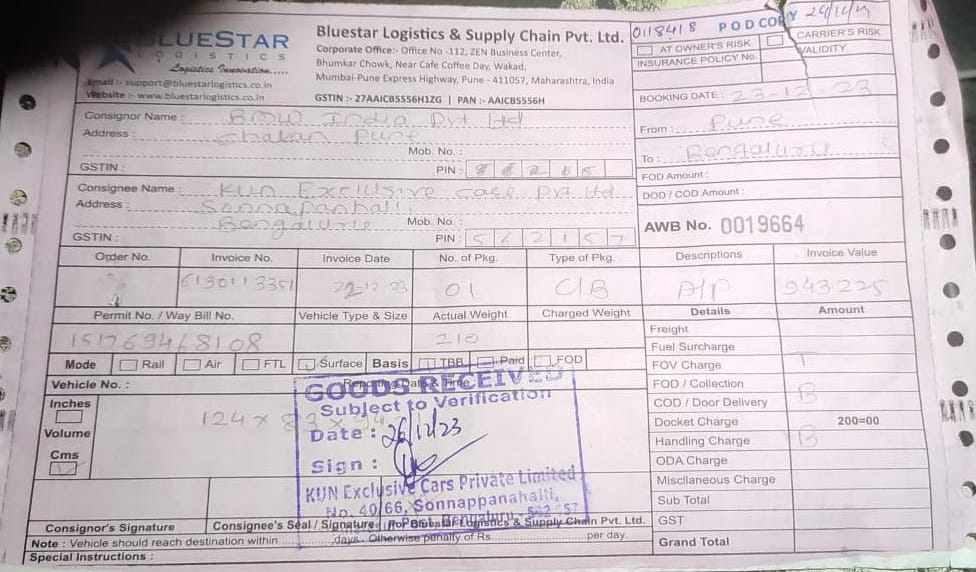 BLUESTAR
LOGISTICS
Logistics Innovation.....
Email :- support@bluestarlogistics.co.in
Website :- www.bluestarlogistics.co.in
Bluestar Logistics & Supply Chain Pvt. Ltd.
Corporate Office:- Office No -112, ZEN Business Center,
Bhumkar Chowk, Near Cafe Coffee Day, Wakad,
Mumbai-Pune Express Highway, Pune - 411057, Maharashtra, India
GSTIN :- 27AAICB5556H1ZG | PAN :- AAICB5556H
0118418 POD COPY
AT OWNER'S RISK CARRIER'S RISK
INSURANCE POLICY No. VALIDITY
BOOKING DATE : 23-12-23
Consignor Name : BMW India Pvt Ltd
Address : Chakan Pune
Mob. No. :
GSTIN : PIN :
From : Pune
To : Bengaluru
FOD Amount :
DOD / COD Amount :
Consignee Name : KUN Exclusive Cars Pvt Ltd
Address : Sonnapanhali,
Bengaluru Mob. No. :
GSTIN : PIN : 562157
AWB No. 0019664
Order No. Invoice No. Invoice Date No. of Pkg. Type of Pkg. Descriptions Invoice Value
6130113351 22-12-23 01 C/B A/P 943225
Permit No. / Way Bill No. Vehicle Type & Size Actual Weight Charged Weight Details Amount
151769468108 210
Freight
Fuel Surcharge
Mode Rail Air FTL Surface Basis TBB Paid FOD
FOV Charge T
Vehicle No. : Reporting Date & Time
FOD / Collection
COD / Door Delivery B
Inches
124 x 83 x 94
Docket Charge 200=00
Volume
Handling Charge B
Cms
ODA Charge
Misclaneous Charge
Sub Total
GOODS RECEIVED
Subject to Verification
Date : 26/12/23
Sign :
KUN Exclusive Cars Private Limited
No. 40/66, Sonnappanahalli,
Consignor's Signature Consignee's Seal / Signature For Bluestar Logistics & Supply Chain Pvt. Ltd.
GST
Note : Vehicle should reach destination within days. Otherwise penalty of Rs. per day.
Grand Total
Special Instructions :